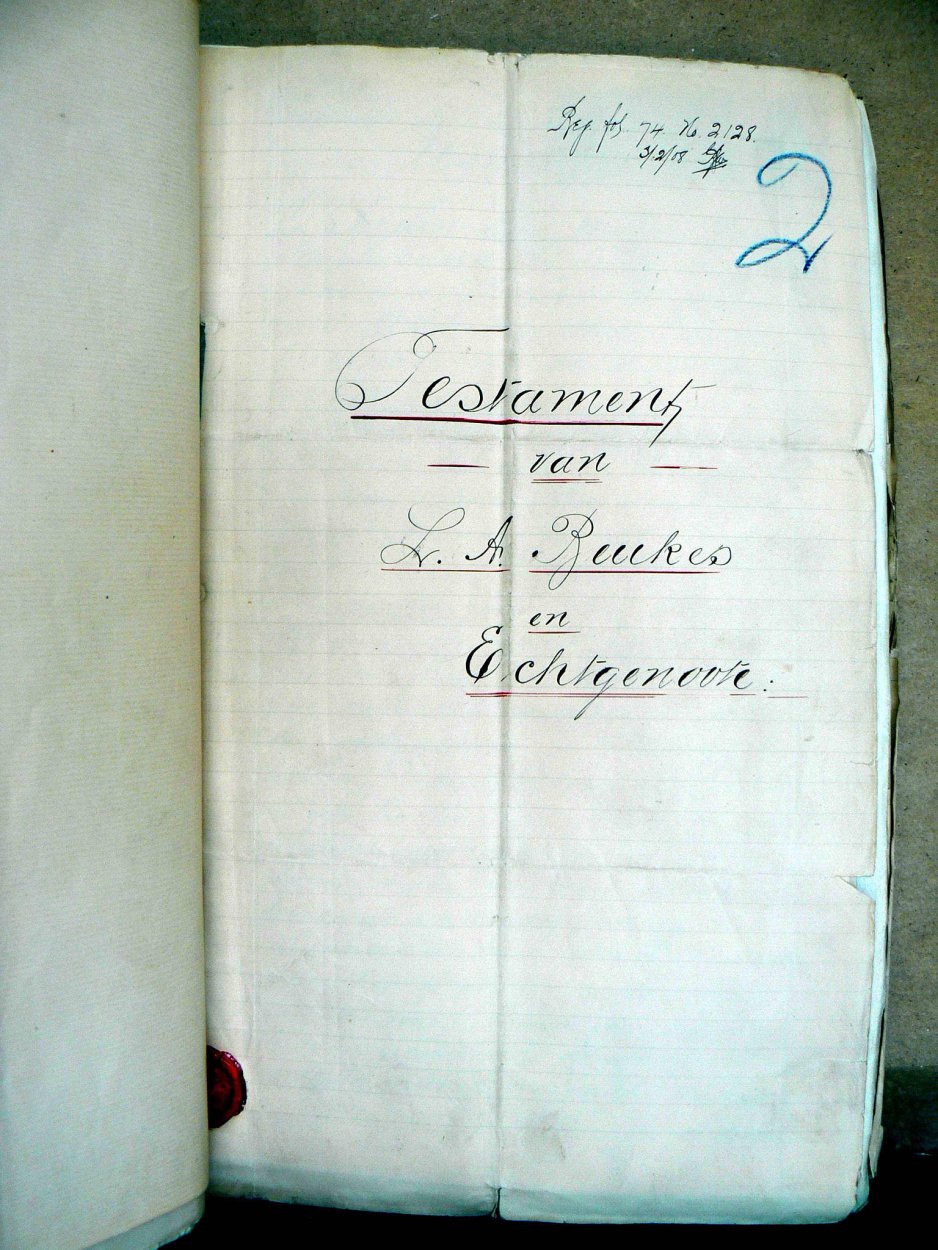 Reg. fol. 74 No. 2128.
3/2/08
2
Testament
— van —
L. A. Beukes
en
Echtgenoote: